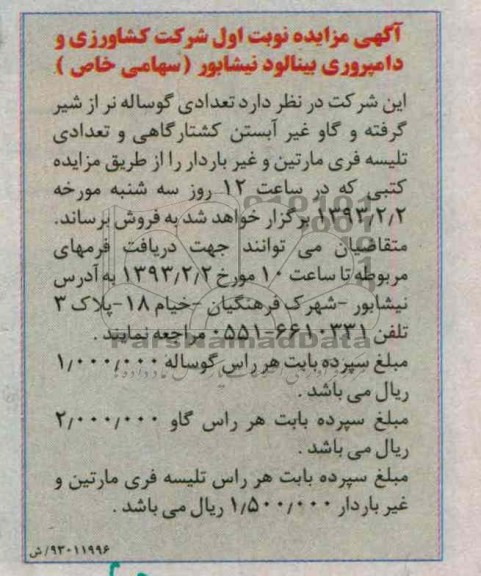 آگهی مزایده نوبت اول شرکت کشاورزی و
دامپروری بینالود نیشابور (سهامی خاص )
این شرکت در نظر دارد تعدادی گوساله نر از شیر
گرفته و گاو غیر آبستن کشتارگاهی و تعدادی
تلیسه فری مارتین و غیر باردار را از طریق مزایده
کتبی که در ساعت ۱۲ روز سه شنبه مورخه
۱۳۹۳/۲/۲ برگزار خواهد شد به فروش برساند.
متقاضیان می توانند جهت دریافت فرمهای
مربوطه تا ساعت ۱۰ مورخ ۱۳۹۳/۲/۲ به آدرس
نیشابور -شهرک فرهنگیان -خیام ۱۸-پلاک ۳
تلفن ۶۶۱۰۳۳۱-۰۵۵۱ مراجعه نمایند .
ParsNamadData
مبلغ سپرده بابت هر راس گوساله ۱/۰۰۰/۰۰۰
ریال می باشد .
مبلغ سپرده بابت هر راس گاو ۲/۰۰۰/۰۰۰
ریال می باشد .
مبلغ سپرده بابت هر راس تلیسه فری مارتین و
غیر باردار ۱/۵۰۰/۰۰۰ ریال می باشد .
۹۳۰۱۱۹۹۶/ش